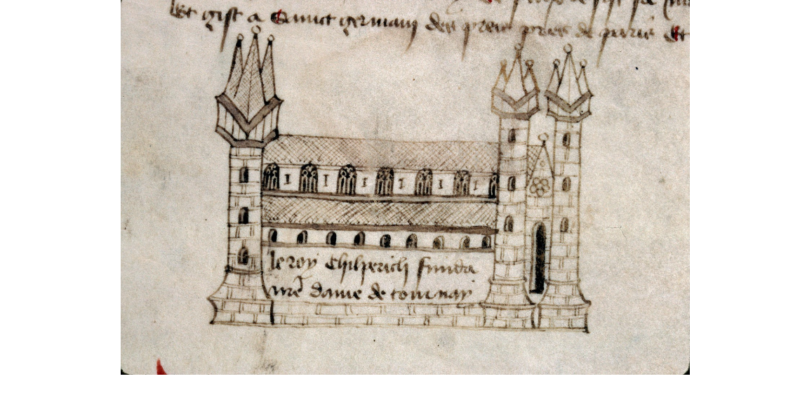 Et gist a Sainct germain des pres pres de paris Et
le roy Chilperich funda
nrẽ dame de tournay